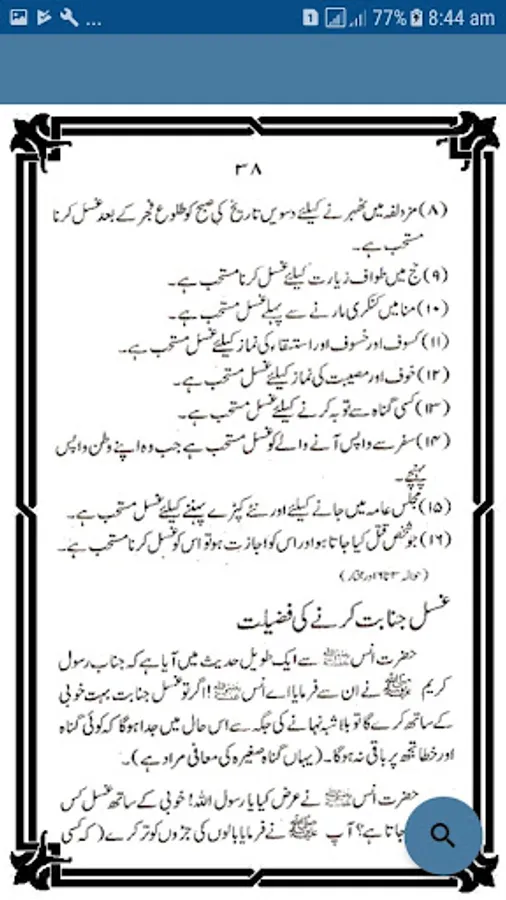 ... 1 77% 8:44 am
۳۸
(۸) مزدلفہ میں ٹھہرنے کیلئے دسویں تاریخ کی صبح کو طلوع فجر کے بعد غسل کرنا
مستحب ہے۔
(۹) حج میں طواف زیارت کیلئے غسل کرنا مستحب ہے۔
(۱۰) منا میں کنکری مارنے سے پہلے غسل مستحب ہے۔
(۱۱) کسوف اور خسوف اور استسقاء کی نماز کیلئے غسل مستحب ہے۔
(۱۲) خوف اور مصیبت کی نماز کیلئے غسل مستحب ہے۔
(۱۳) کسی گناہ سے توبہ کرنے کیلئے غسل مستحب ہے۔
(۱۴) سفر سے واپس آنے والے کو غسل مستحب ہے جب وہ اپنے وطن واپس
پہنچے۔
(۱۵) مجلس عامہ میں جانے کیلئے اور نئے کپڑے پہننے کیلئے غسل مستحب ہے۔
(۱۶) جو شخص قتل کیا جاتا ہو اور اس کو اجازت ہو تو اس کو غسل کرنا مستحب ہے۔
(حوالہ ۳ تا ۱۶ در مختار)
غسل جنابت کرنے کی فضیلت
حضرت انس ﷺ سے ایک طویل حدیث میں آیا ہے کہ جناب رسول
کریم ﷺ نے ان سے فرمایا اے انس ﷺ! اگر تو غسل جنابت بہت خوبی
کے ساتھ کرے گا تو بلا شبہ نہانے کی جگہ سے اس حال میں جدا ہوگا کہ کوئی گناہ
اور خطا تجھ پر باقی نہ ہوگا۔ (یہاں گناہ صغیرہ کی معافی مراد ہے)۔
حضرت انس ﷺ نے عرض کیا یا رسول اللہ! خوبی کے ساتھ غسل کس
جاتا ہے؟ آپ ﷺ نے فرمایا بالوں کی جڑوں کو تر کرے (کہ کسی